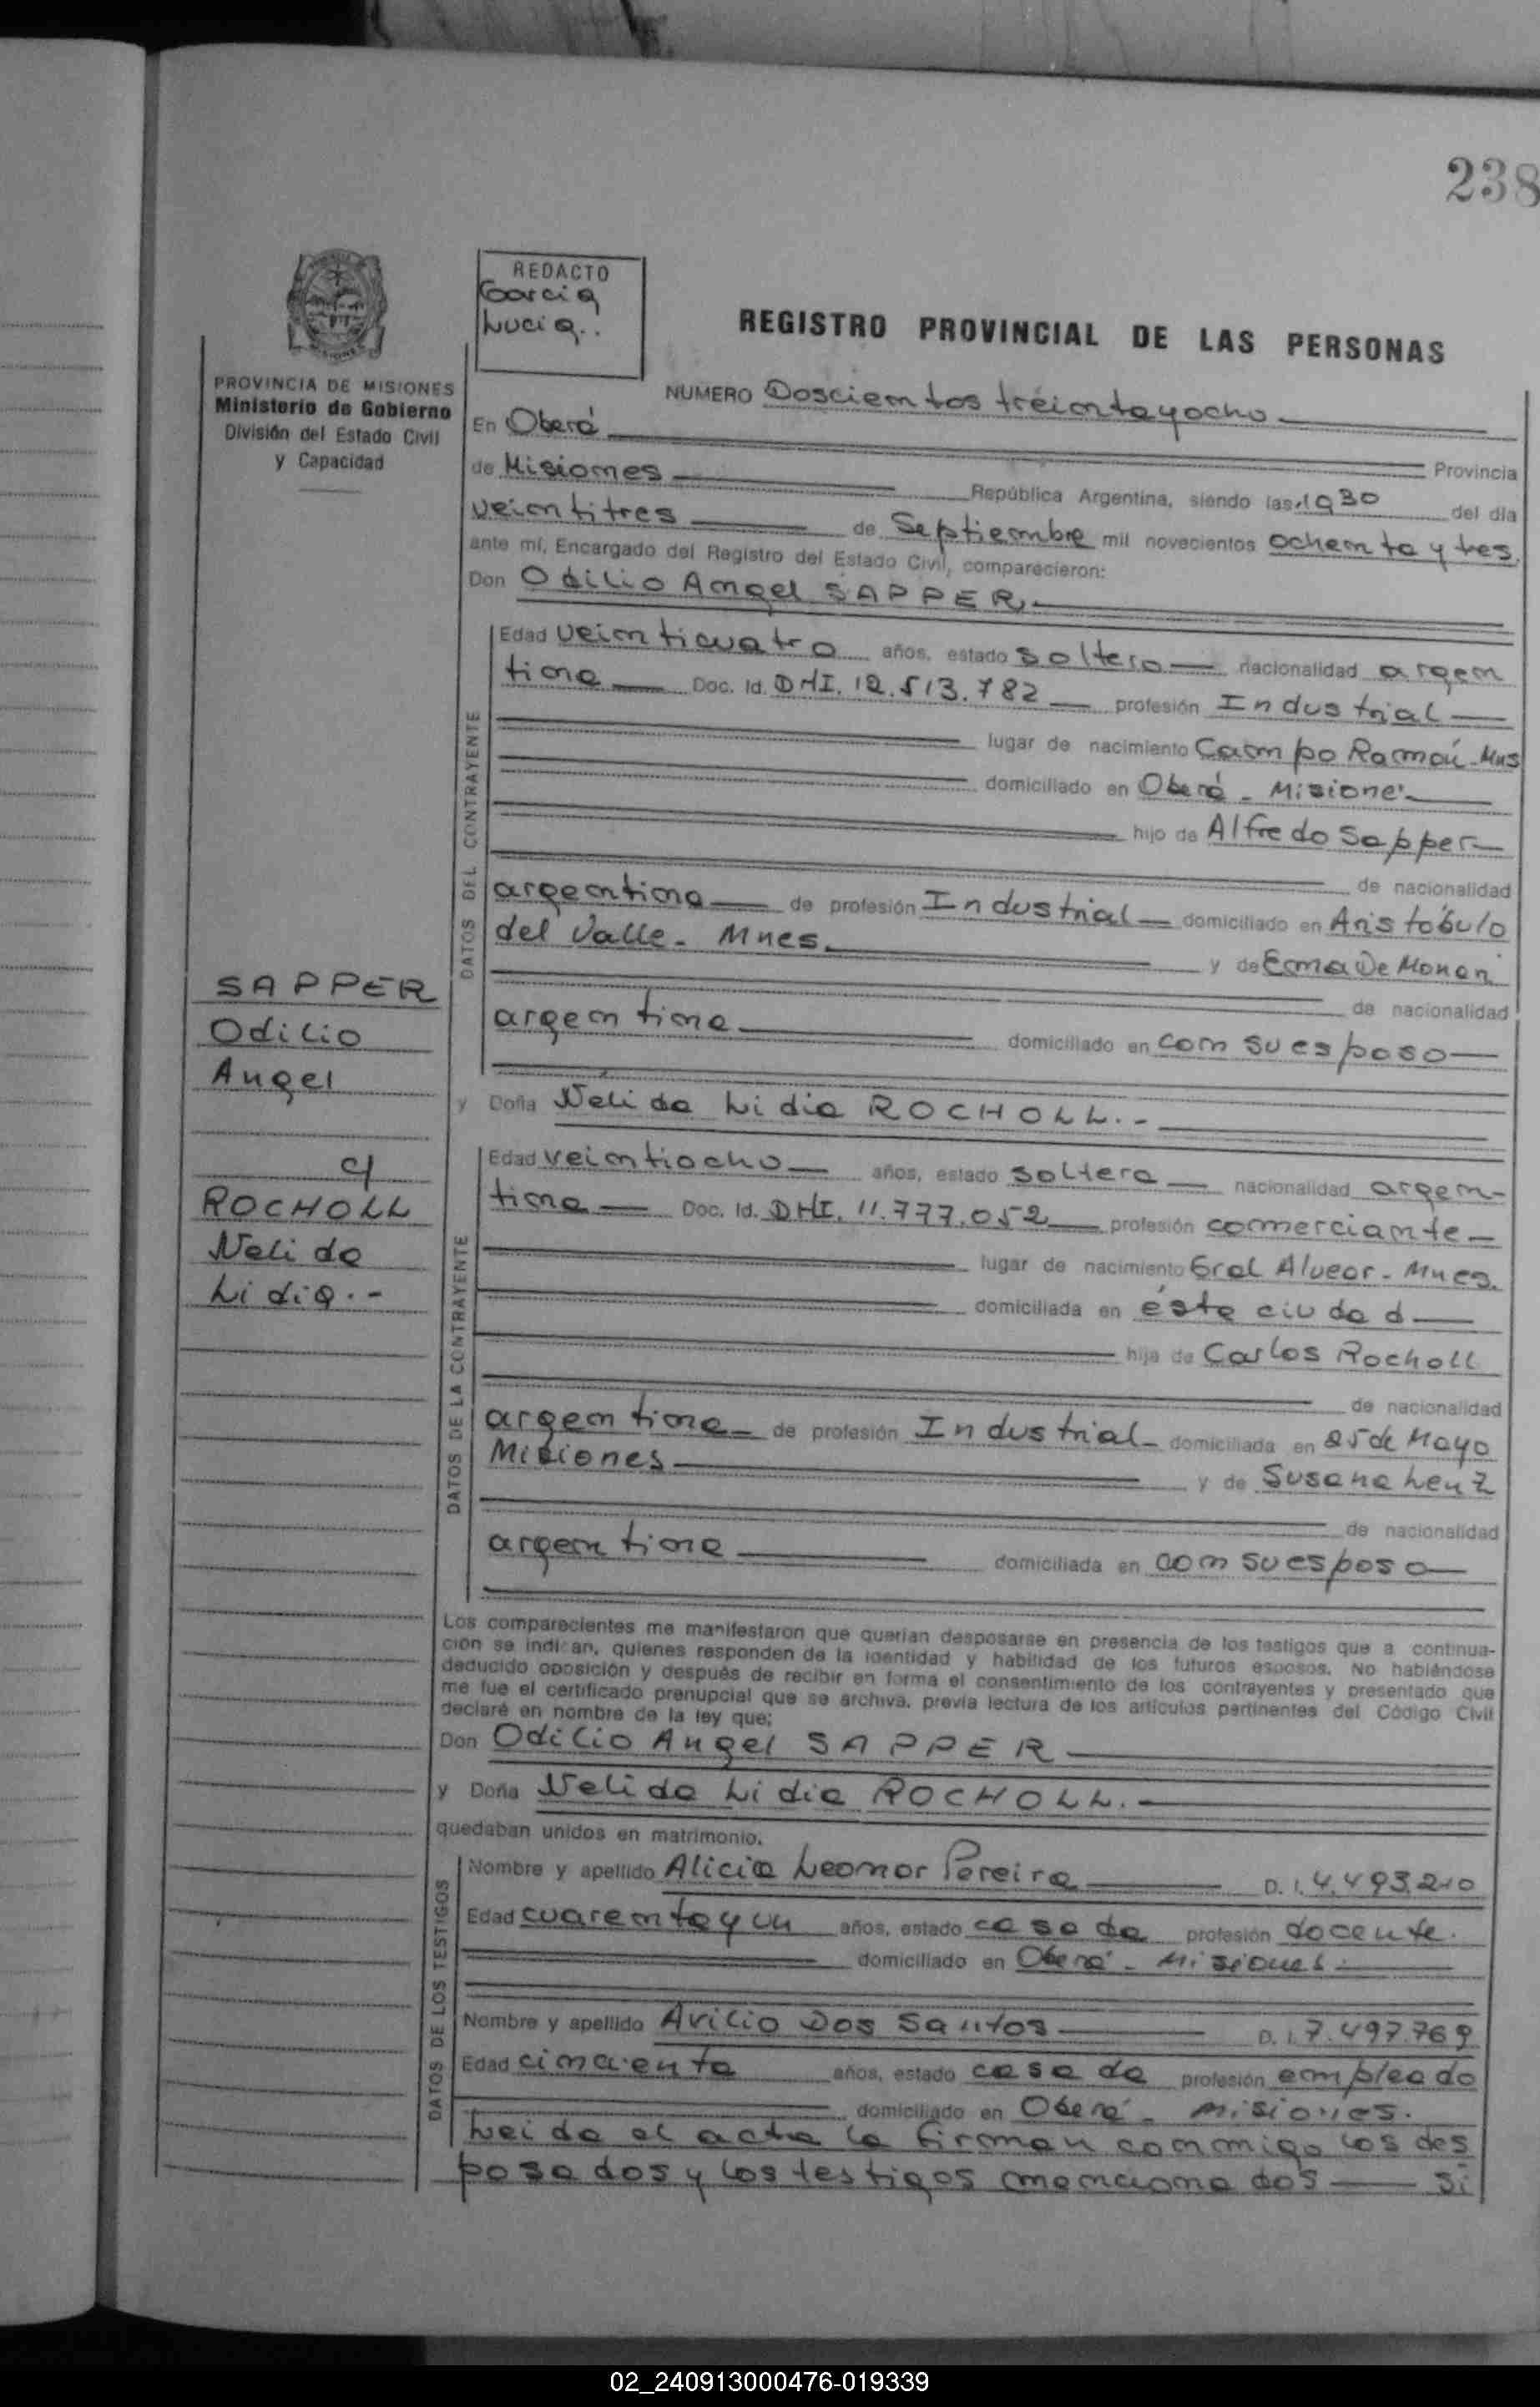 238
REDACTO
Garcia
Lucia..
REGISTRO PROVINCIAL DE LAS PERSONAS
PROVINCIA DE MISIONES
Ministerio de Gobierno
División del Estado Civil
y Capacidad
NUMERO Doscientos treintayocho
En Oberá
Provincia
de Misiones República Argentina, siendo las 1930 del día
veintitres de Septiembre mil novecientos ochenta y tres.
ante mí, Encargado del Registro del Estado Civil, comparecieron:
Don Odilio Angel SAPPER.
DATOS DEL CONTRAYENTE
Edad veinticuatro años, estado soltero nacionalidad argen
tina Doc. Id. DNI. 12.513.782 profesión Industrial
lugar de nacimiento Campo Ramón-Mns
domiciliado en Oberá - Misiones
hijo de Alfredo Sapper
de nacionalidad
argentina de profesión Industrial domiciliado en Aristóbulo
del Valle - Mnes.
y de Erma De Moneri
de nacionalidad
argentina domiciliado en con su esposo
SAPPER
Odilio
Angel
c/
ROCHOLL
Nelida
Lidia.-
y Doña Nelida Lidia ROCHOLL.-
DATOS DE LA CONTRAYENTE
Edad veintiocho años, estado soltera nacionalidad argen-
tina Doc. Id. DNI. 11.777.052 profesión comerciante
lugar de nacimiento Gral Alvear - Mnes.
domiciliada en ésta ciudad
hija de Carlos Rocholl
de nacionalidad
argentina de profesión Industrial domiciliada en 25 de Mayo
Misiones y de Susana Lenz
de nacionalidad
argentina domiciliada en con su esposo
Los comparecientes me manifestaron que querían desposarse en presencia de los testigos que a continua-
ción se indican, quienes responden de la identidad y habilidad de los futuros esposos. No habiéndose
deducido oposición y después de recibir en forma el consentimiento de los contrayentes y presentado que
me fue el certificado prenupcial que se archiva, previa lectura de los artículos pertinentes del Código Civil
declaré en nombre de la ley que:
Don Odilio Angel SAPPER
y Doña Nelida Lidia ROCHOLL.
quedaban unidos en matrimonio.
DATOS DE LOS TESTIGOS
Nombre y apellido Alicia Leonor Pereira D. I. 4.493.210
Edad cuarenta y un años, estado casada profesión docente.
domiciliado en Oberá - Misiones
Nombre y apellido Avilio Dos Santos D. I. 7.497.769
Edad cincuenta años, estado casado profesión empleado
domiciliado en Oberá - Misiones.
Leida el acta la firman conmigo los des
posados y los testigos mencionados si
02_240913000476-019339